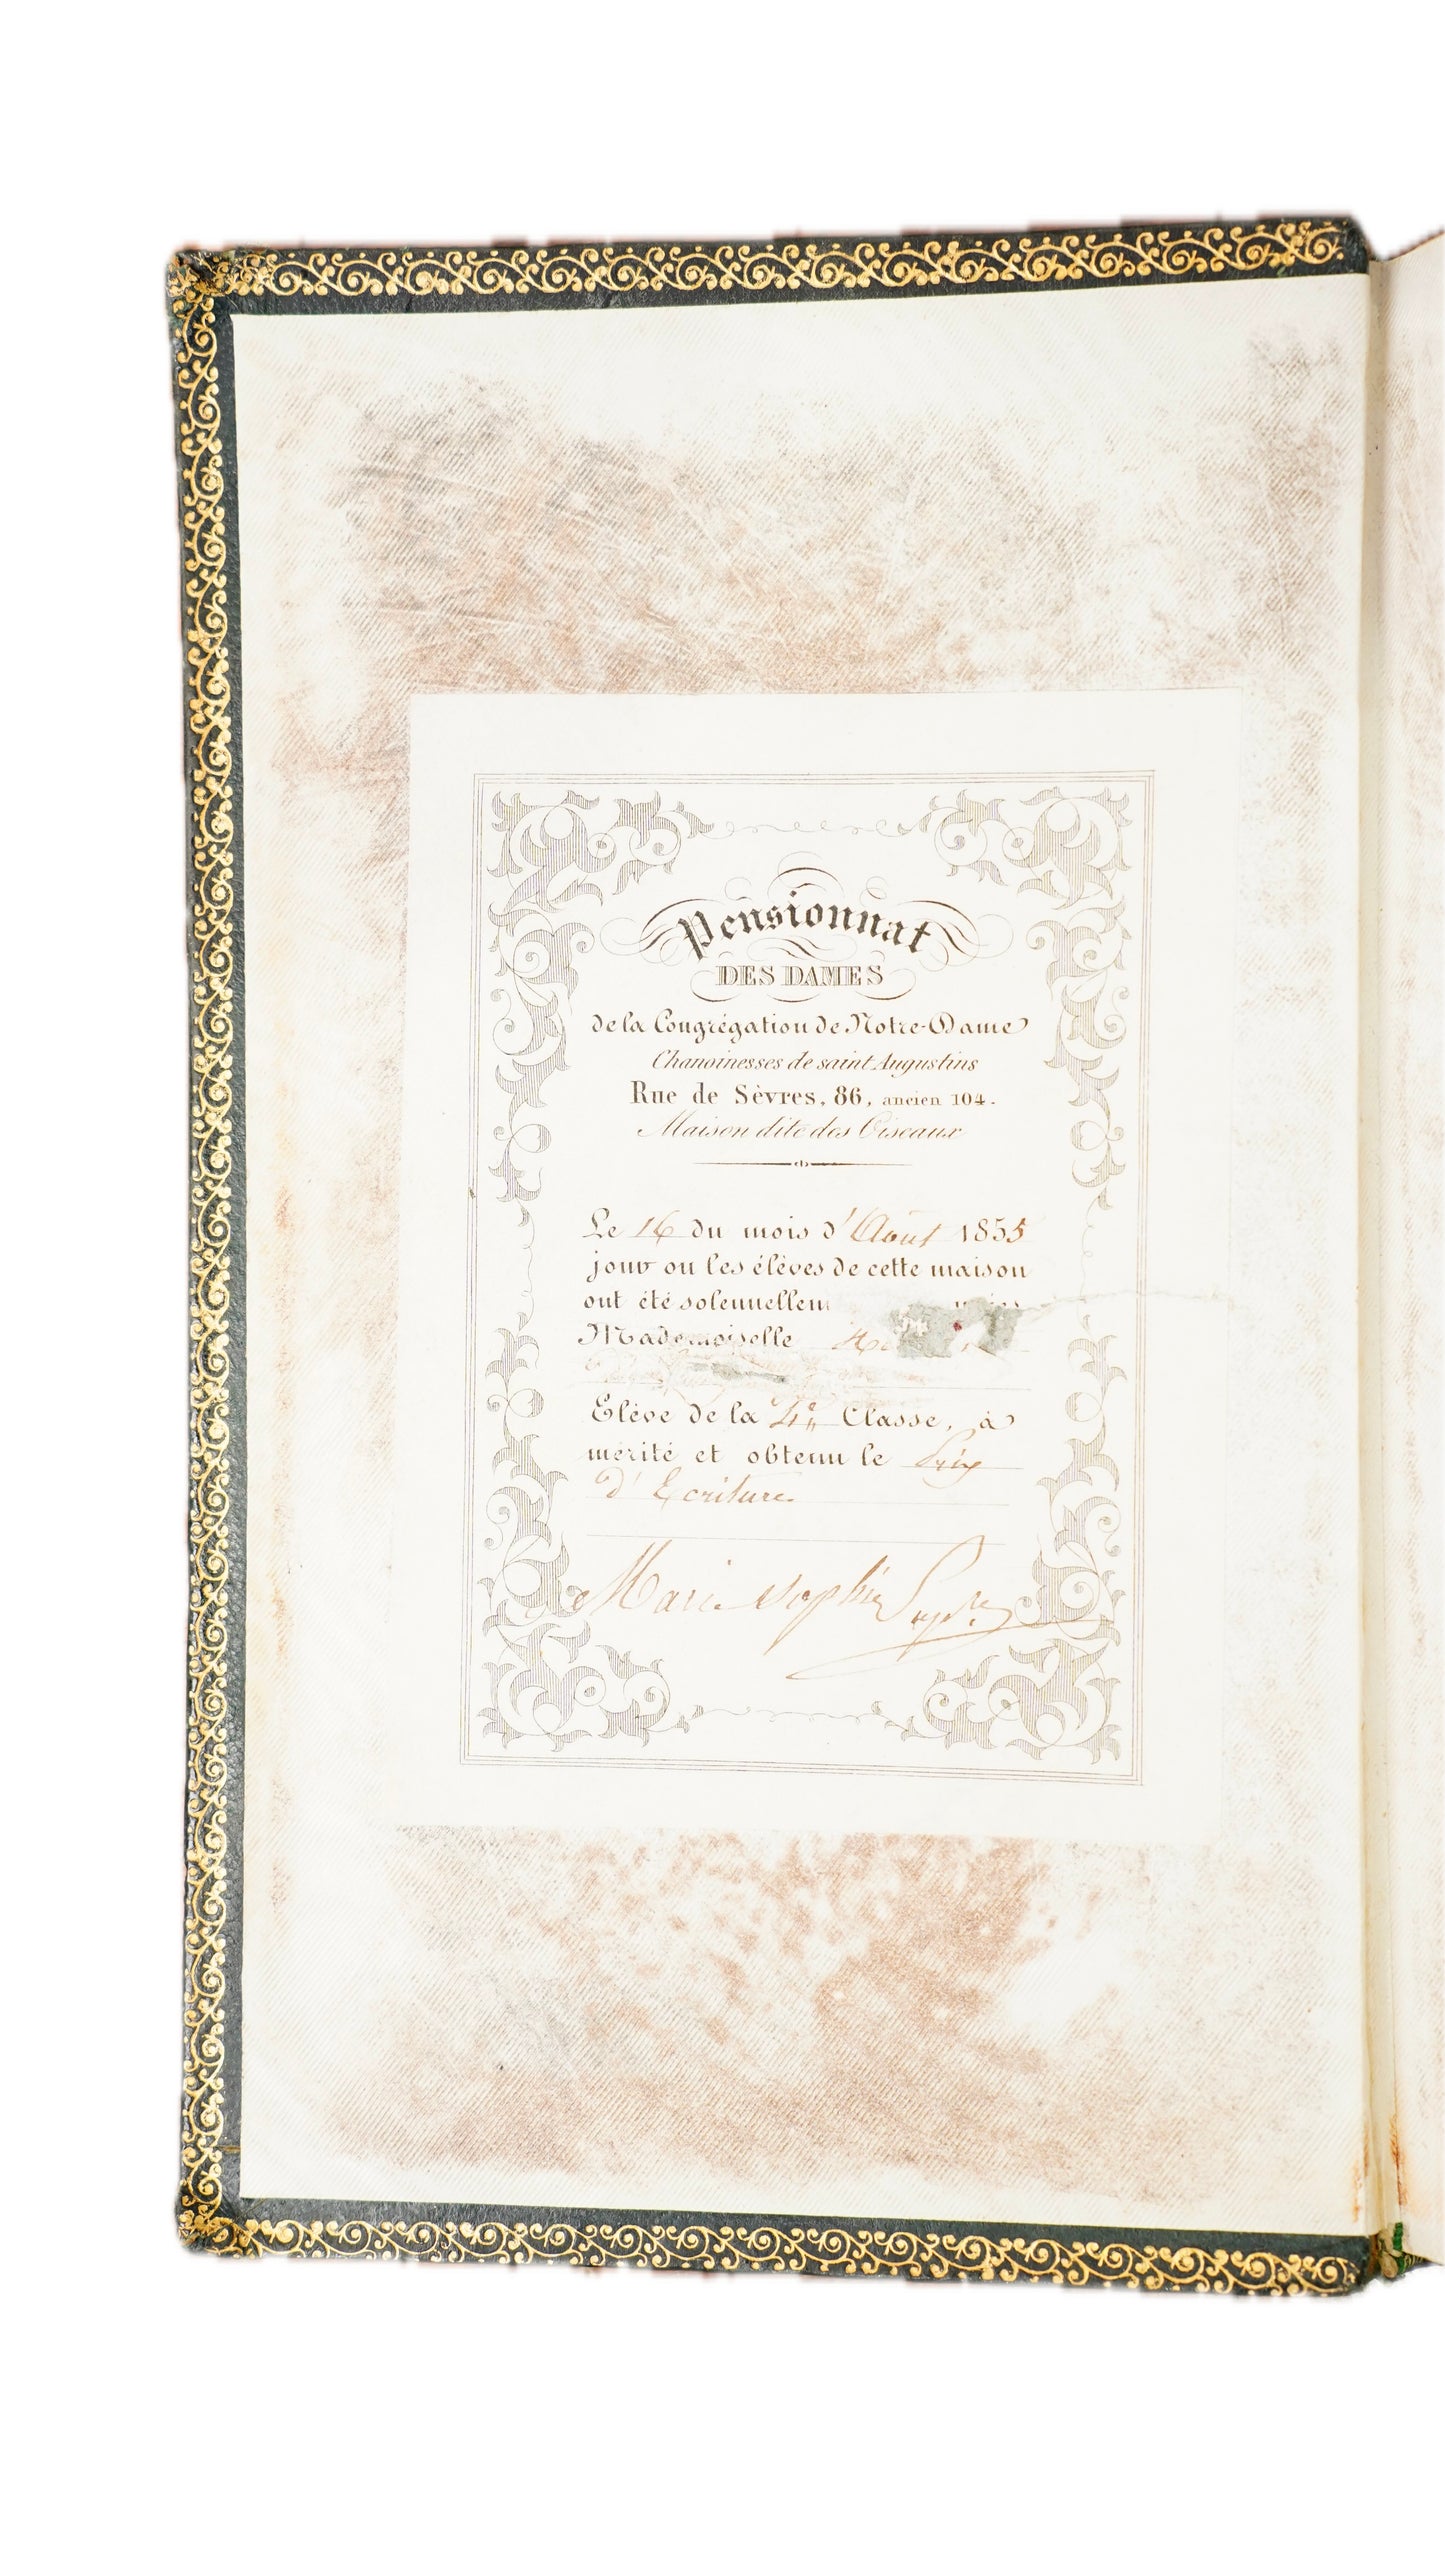 Pensionnat
DES DAMES
de la Congrégation de Notre-Dame
Chanoinesses de saint Augustins
Rue de Sèvres, 86, ancien 104.
Maison dite des Oiseaux
Le 16 du mois d'Août 1855
jour ou les élèves de cette maison
ont été solennellem
Mademoiselle
Elève de la 4e Classe, à
mérité et obtenu le Prix
d'Ecriture.
Marie Sophie Supre